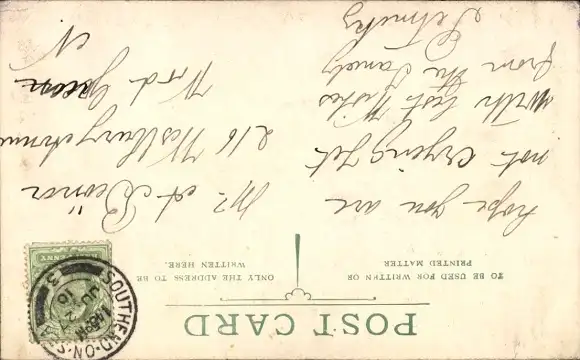 POST CARD
TO BE USED FOR WRITTEN OR
PRINTED MATTER
ONLY THE ADDRESS TO BE
WRITTEN HERE.
hope you are
not crying yet
with best wishes
from the Family
Mr A
216 Westbury Avenue
Wood Green
N
SOUTHEND-ON-S